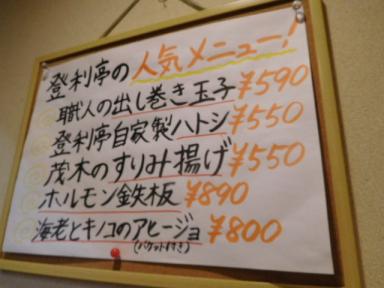 登利亭の人気メニュー!
職人の出し巻き玉子¥590
登利亭自家製ハトシ¥550
茂木のすりみ揚げ¥550
ホルモン鉄板¥890
海老とキノコのアヒージョ¥800
(バケット付き)